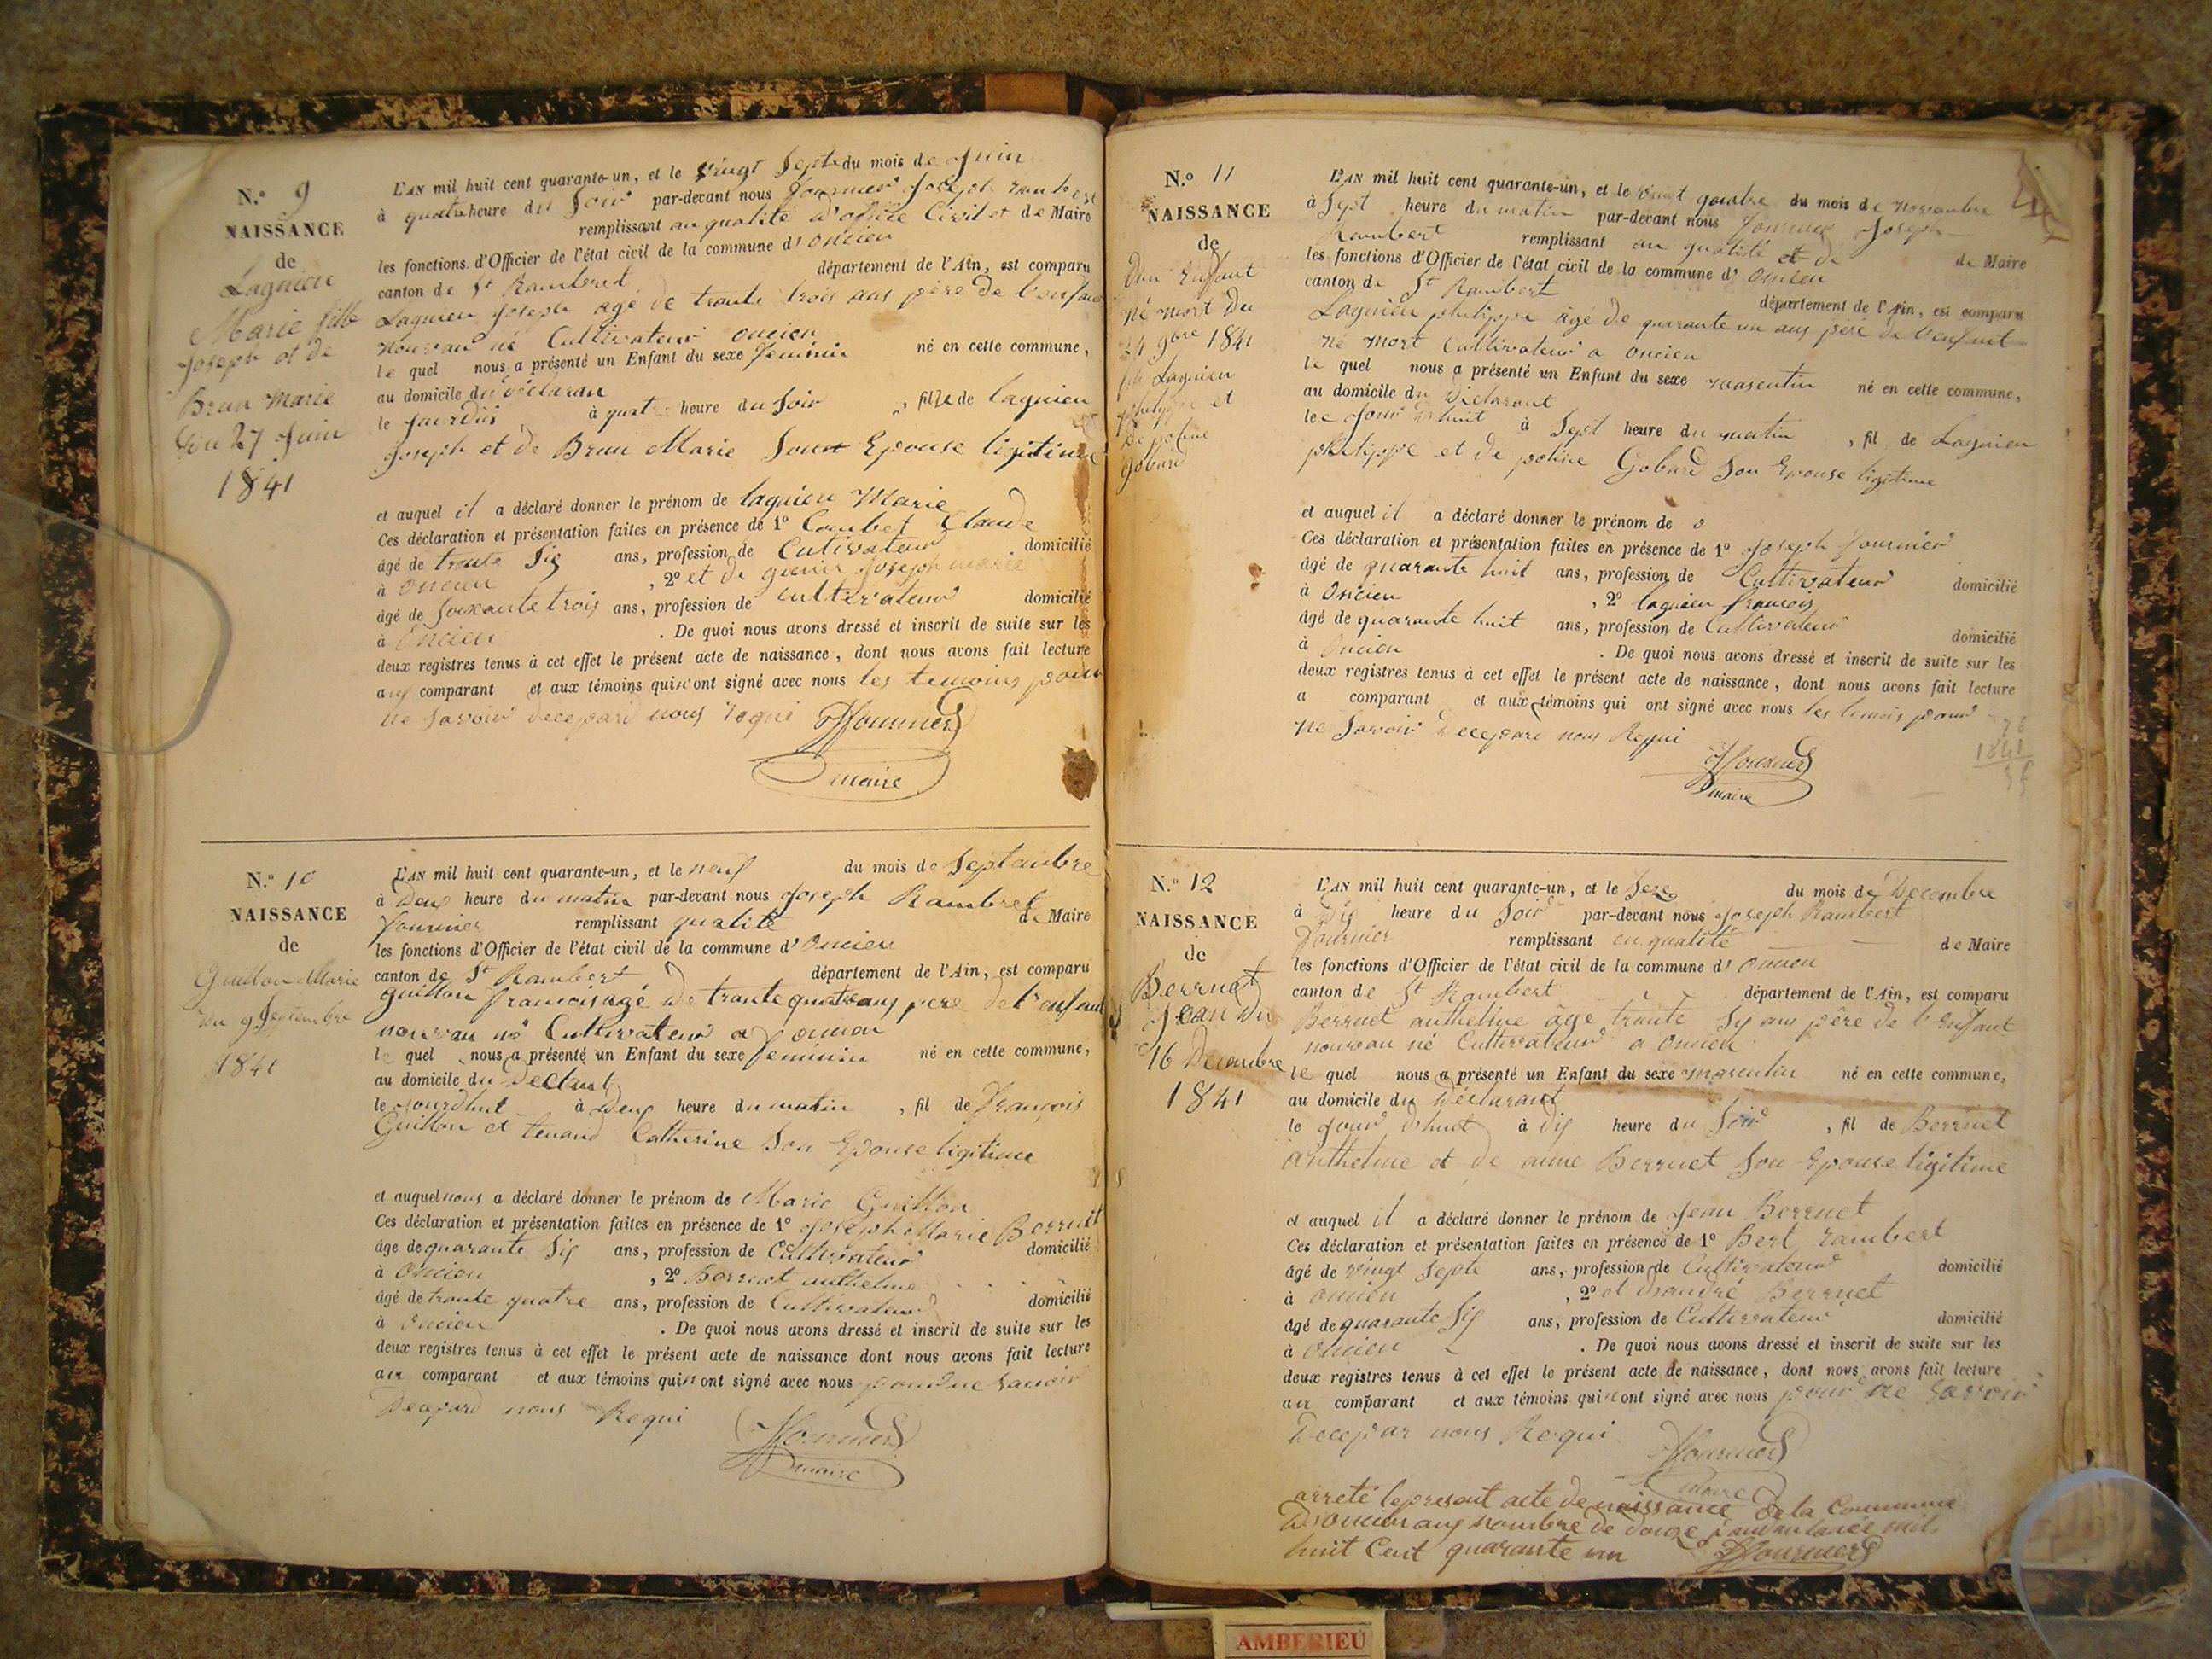 N.º 9
NAISSANCE
de
Lagnieu
Marie fille
Joseph et de
Brun Marie
du 27 Juin
1841
L'AN mil huit cent quarante-un, et le vingt Septe du mois de Juin
à quatre heure du Soir par-devant nous fournier Joseph rambert
remplissant au qualité d'office Civil et de Maire
les fonctions d'Officier de l'état civil de la commune d' oncieu
canton de St Rambert département de l'Ain, est comparu
Lagnieu Joseph age de trante trois ans père de l'enfant
nouvau né Cultivateur oncieu
le quel nous a présenté un Enfant du sexe feminin né en cette commune,
au domicile du déclaran
le jourdui à quatre heure du Soir , fille de lagnieu
Joseph et de Brun Marie Son Epouse ligitime
et auquel il a déclaré donner le prénom de lagnieu Marie
Ces déclaration et présentation faites en présence de 1º Combet Claude
âgé de trante Six ans, profession de Cultivateur domicilié
à oncieu , 2º et de grenier Joseph marie
âgé de Soixante trois ans, profession de cultivateur domicilié
à Oncieu . De quoi nous avons dressé et inscrit de suite sur les
deux registres tenus à cet effet le présent acte de naissance, dont nous avons fait lecture
aux comparant et aux témoins qui n'ont signé avec nous les temoins pour
ne Savoir decepard nous requi JFournier
maire
N.º 10
NAISSANCE
de
Guillon Marie
du 9 Septembre
1841
L'AN mil huit cent quarante-un, et le neuf du mois de Septembre
à Deux heure du matin par-devant nous Joseph Rambret
fournier remplissant qualité de Maire
les fonctions d'Officier de l'état civil de la commune d' Oncieu
canton de St Rambert département de l'Ain, est comparu
guillon francois agé de trante quatre ans pere de l'enfant
nouvau né Cultivateur a oncieu
le quel nous a présenté un Enfant du sexe feminin né en cette commune,
au domicile du Declant
le jourdhui à Deux heure du matin , fil de François
Guillon et tenand Catherine Son Epouse ligitime
et auquel nous a déclaré donner le prénom de Marie Guillon
Ces déclaration et présentation faites en présence de 1º Joseph Marie Berrnet
âgé de quarante Six ans, profession de Cultivateur domicilié
à Oncieu , 2º Berrnet anthelme
âgé de trante quatre ans, profession de Cultivateur domicilié
à Oncieu . De quoi nous avons dressé et inscrit de suite sur les
deux registres tenus à cet effet le présent acte de naissance dont nous avons fait lecture
au comparant et aux témoins qui n'ont signé avec nous pour ne Savoir
Decepard nous Requi JFournier
maire
N.º 11
NAISSANCE
de
Dun Enfant
né mort du
24 9bre 1841
Lagnieu
philippe et
de poline
gobard
L'AN mil huit cent quarante-un, et le vingt quatre du mois de novembre
à Sept heure du matin par-devant nous fournier Joseph
Rambert remplissant au qualité et de de Maire
les fonctions d'Officier de l'état civil de la commune d' oncieu
canton de St Rambert département de l'Ain, est comparu
Lagnieu philippe age de quarante un ans père de l'enfant
né mort Cultivateur a oncieu
le quel nous a présenté un Enfant du sexe masculin né en cette commune,
au domicile du Déclarant
lee Jour Dhuit à Sept heure du matin , fil de Lagnieu
philippe et de poline Gobard Son Epouse ligitime
et auquel il a déclaré donner le prénom de o
Ces déclaration et présentation faites en présence de 1º Joseph fournier
âgé de quarante huit ans, profession de Cultivateur domicilié
à Oncieu , 2º lagnieu francois
âgé de quarante huit ans, profession de Cultivateur domicilié
à Oncieu . De quoi nous avons dressé et inscrit de suite sur les
deux registres tenus à cet effet le présent acte de naissance, dont nous avons fait lecture
a comparant et aux témoins qui ont signé avec nous les temois pour
ne Savoir Decepard nous Requi
JFournier
maire
1841
N.º 12
NAISSANCE
de
Berrnet
Jean du
16 Decembre
1841
L'AN mil huit cent quarante-un, et le Seze du mois de Decembre
à Dix heure du Soir par-devant nous Joseph Rambert
Fournier remplissant en qualité de Maire
les fonctions d'Officier de l'état civil de la commune d' Oncieu
canton de St Rambert département de l'Ain, est comparu
Berrnet anthelme âge trante Six ans père de l'Enfant
nouvau né Cultivateur a Oncieu
le quel nous a présenté un Enfant du sexe masculin né en cette commune,
au domicile du Déclarant
le Jour dhuet à Dix heure du Soir , fil de Berrnet
anthelme et de anne Berrnet Son Epouse ligitime
et auquel il a déclaré donner le prénom de Jean Berrnet
Ces déclaration et présentation faites en présence de 1º Bert rambert
âgé de vingt Septe ans, profession de Cultivateur domicilié
à oncieu , 2º et d'andré Berrnet
âgé de quarante Six ans, profession de Cultivateur domicilié
à Oncieu . De quoi nous avons dressé et inscrit de suite sur les
deux registres tenus à cet effet le présent acte de naissance, dont nous avons fait lecture
au comparant et aux témoins qui n'ont signé avec nous pour ne Savoir
Decepar nous Requi JFournier
maire
arreté le present acte de naissance de la Commune
D'oncieu aux nombre de douze pandan lanée mil
huit Cent quarante un JFournier
AMBERIEU